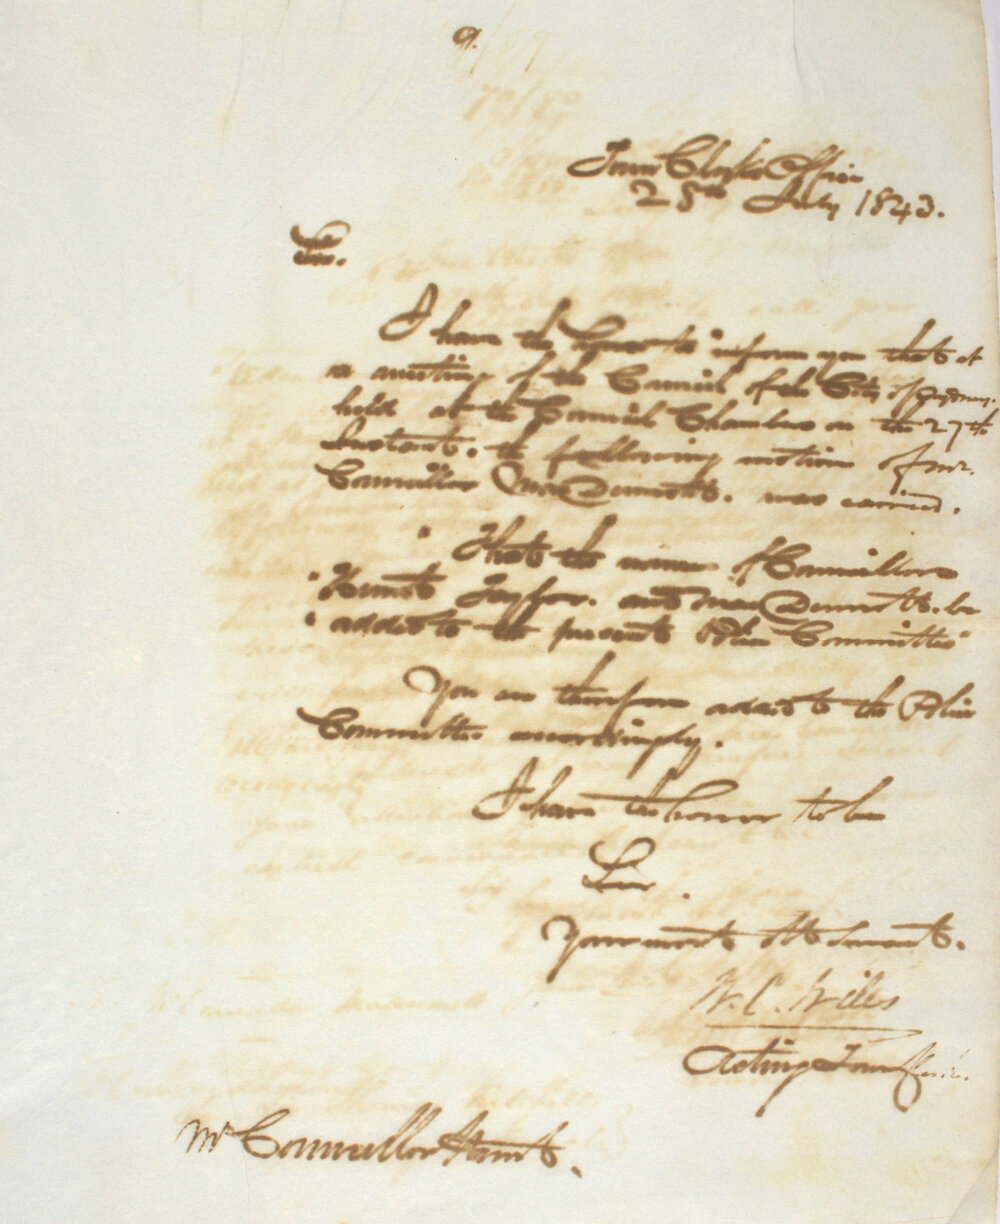 9.
Town Clerks Office
28th July 1843.
Sir.
I have the honor to inform you that at
a meeting of the Council of the City of Sydney.
held at the Council Chambers on the 27th
Instant. the following motion of Mr.
Councillor MacDermott. was carried.
" That the names of Councillors
" Hunt Taylor. and MacDermott. be
" added to the present Police Committee"
You are therefore added to the Police
Committee accordingly.
I have the honor to be
Sir.
Your most Obt Servant.
W. C. Wills
Acting Town Clerk.
Mr Councillor Hunt.